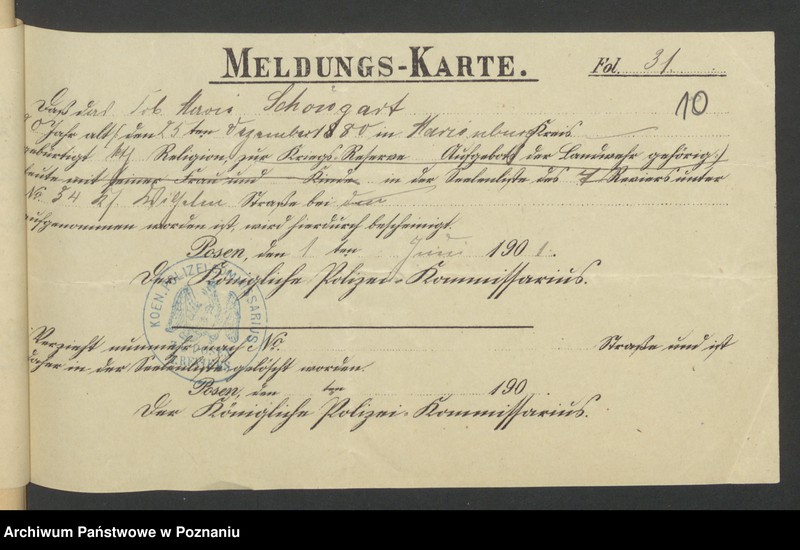 MELDUNGS-KARTE.
Fol. 31
10
Daß das Marie Schöngart
Jahr alt, den 25 ten Dezember 1880 in Marienburg Kreis
gebürtigt kth Religion, zur Kriegs-Reserve Aufgebots der Landwehr gehörig,
heute mit seiner Frau und Kinde in der Seelenliste des 7 Reviers unter
No. 34 Wilhelm Straße bei
aufgenommen worden ist, wird hierdurch bescheinigt.
Posen, den 1 ten Juni 1901.
Der Königliche Polizei-Kommissarius.
KOEN. POLIZEI-COMMISSARIUS
Verzieht nunmehr nach No. Straße und ist
daher in der Seelenliste gelöscht worden.
Posen, den ten 190 .
Der Königliche Polizei-Kommissarius.
Archiwum Państwowe w Poznaniu